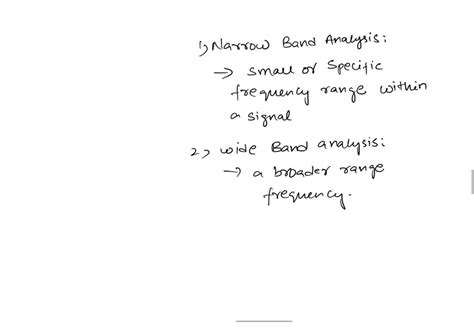 1) Narrow Band Analysis:
→ small or specific
frequency range within
a signal
2) wide Band analysis:
→ a broader range
frequency.